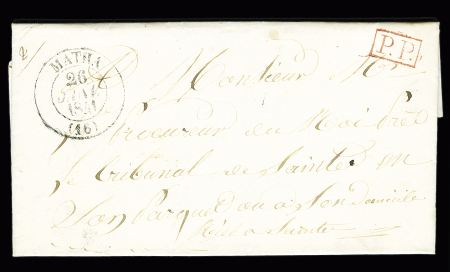 P.P.
MATHA
26
JANV.
1841
(16)
A Monsieur
Procureur du Roi près
le tribunal de Sainte en
Son Parquet ou a Son Domicile
a Sainte